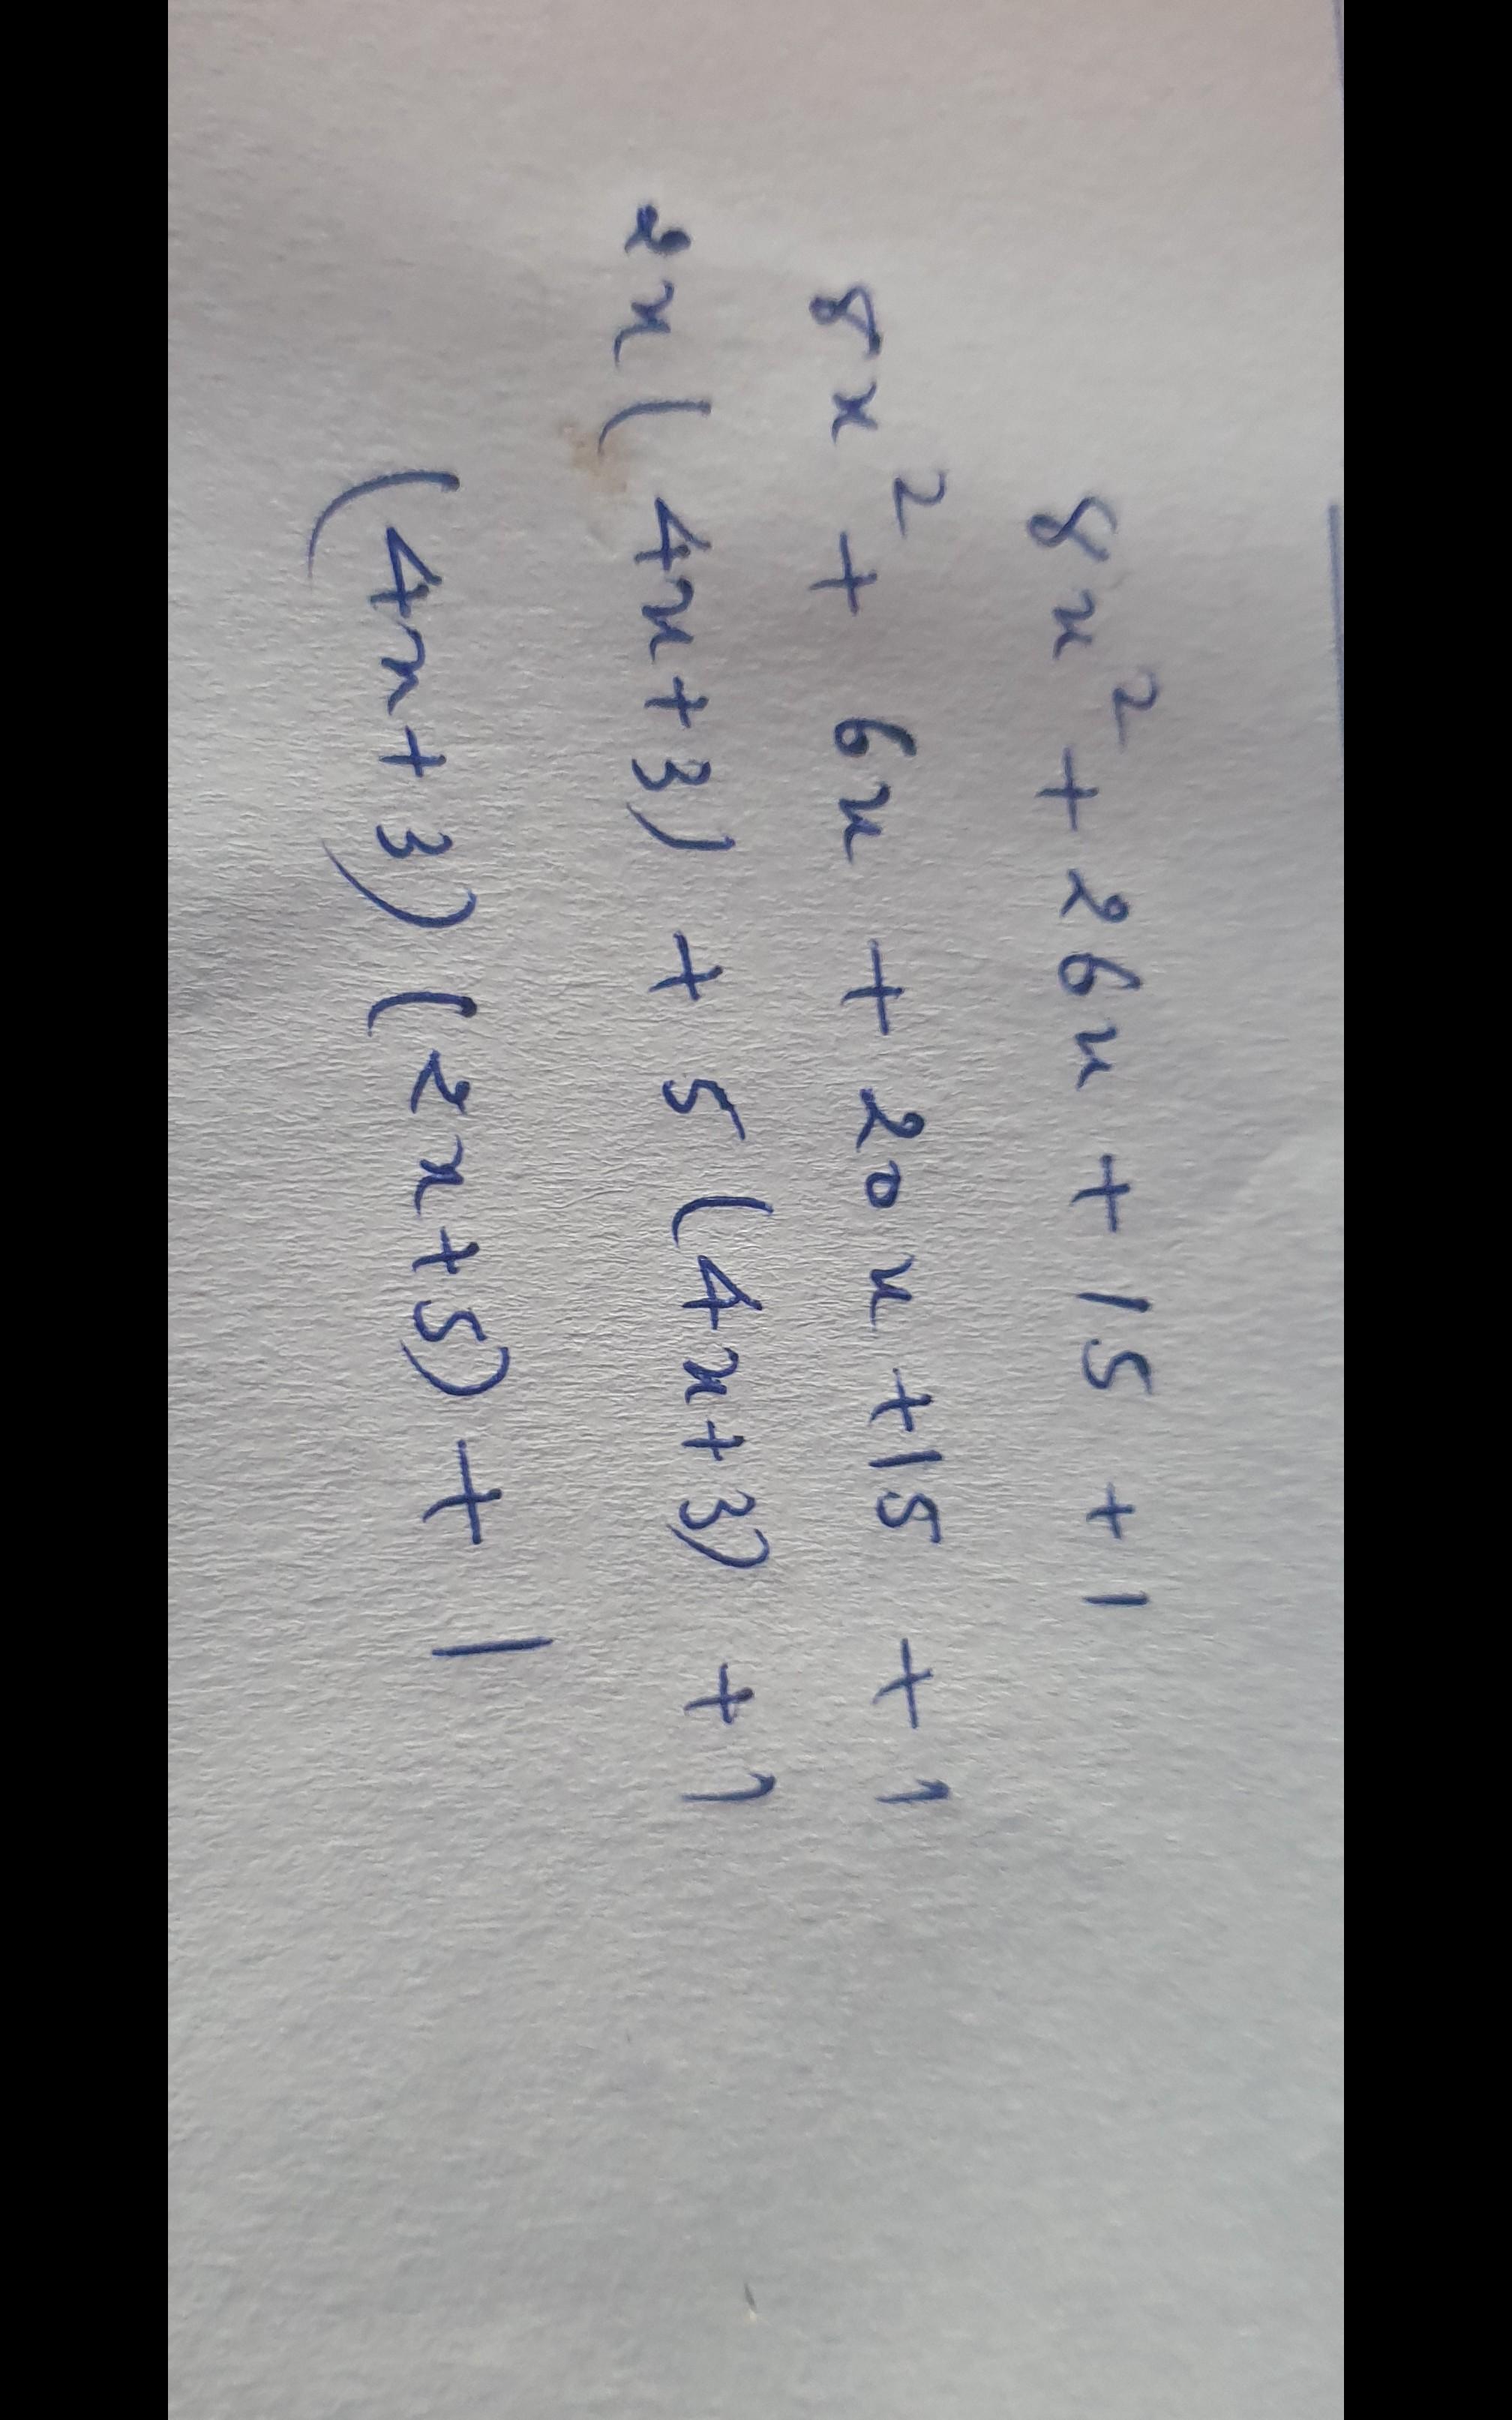 8x² + 26x + 15 + 1
8x² + 6x + 20x + 15 + 1
2x(4x+3) + 5(4x+3) + 1
(4x+3)(2x+5) + 1